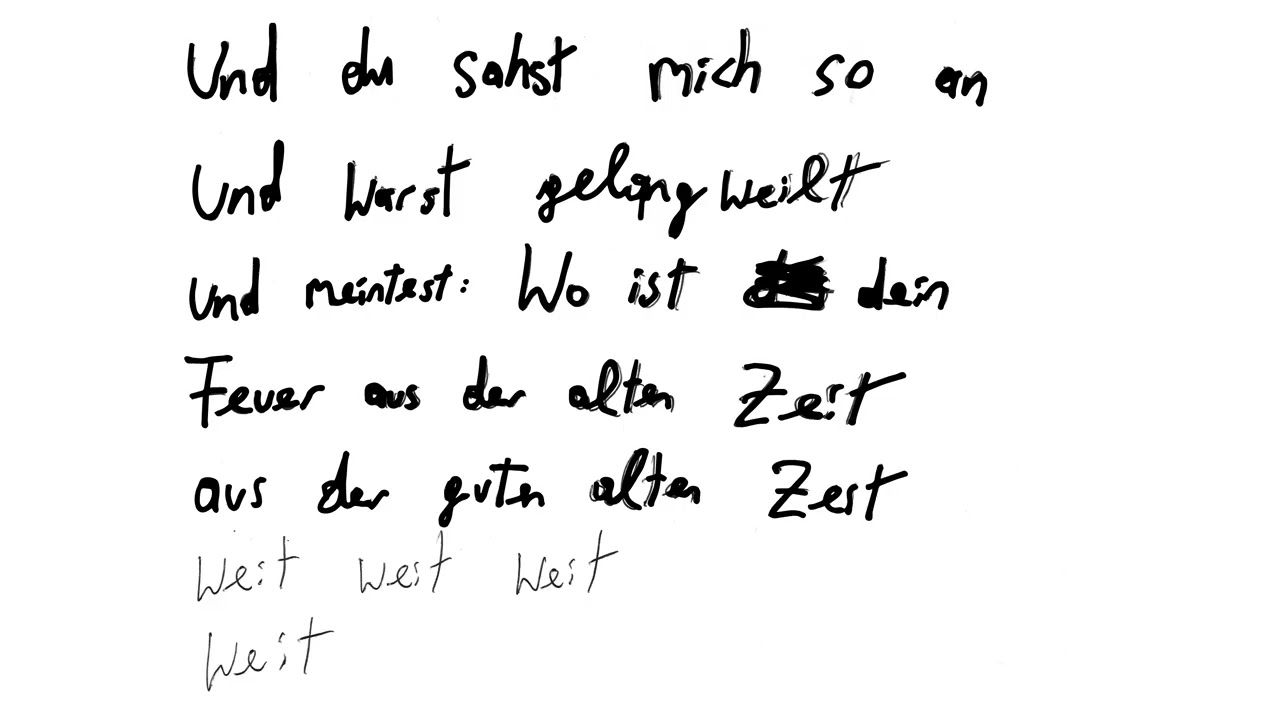 Und du sahst mich so an
Und warst gelangweilt
und meintest: Wo ist dein
Feuer aus der alten Zeit
aus der guten alten Zeit
Weit weit Weit
Weit